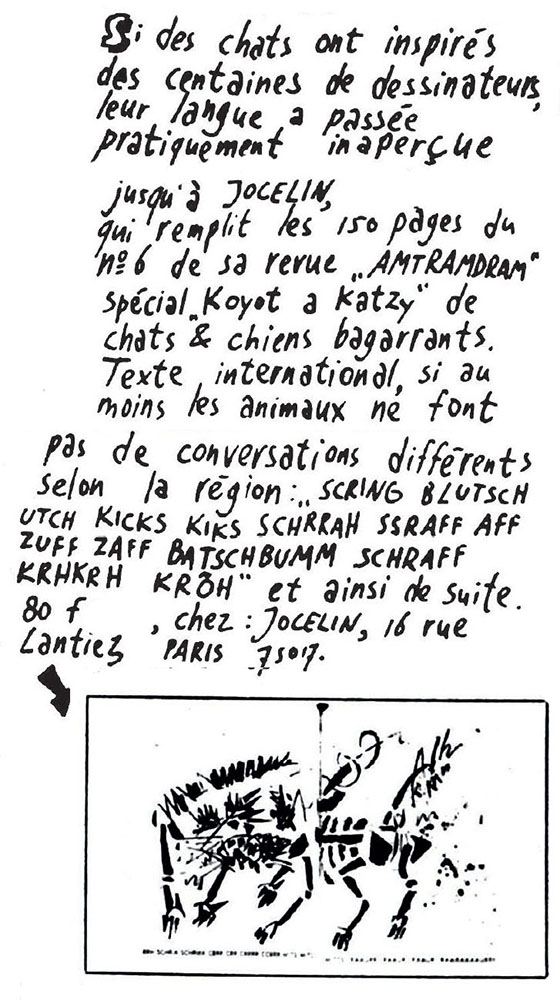 Si des chats ont inspirés
des centaines de dessinateurs,
leur langue a passée
pratiquement inaperçue
jusqu'à JOCELIN,
qui remplit les 150 pages du
nº 6 de sa revue „AMTRAMDRAM"
spécial „Koyot a Katzy" de
chats & chiens bagarrants.
Texte international, si au
moins les animaux ne font
pas de conversations différents
selon la région: „SCRING BLUTSCH
UTCH KICKS KIKS SCHRRAH SSRAFF AFF
ZUFF ZAFF BATSCHBUMM SCHRAFF
KRHKRH KRÖH" et ainsi de suite.
80 f , chez: JOCELIN, 16 rue
Lantiez PARIS 75017.